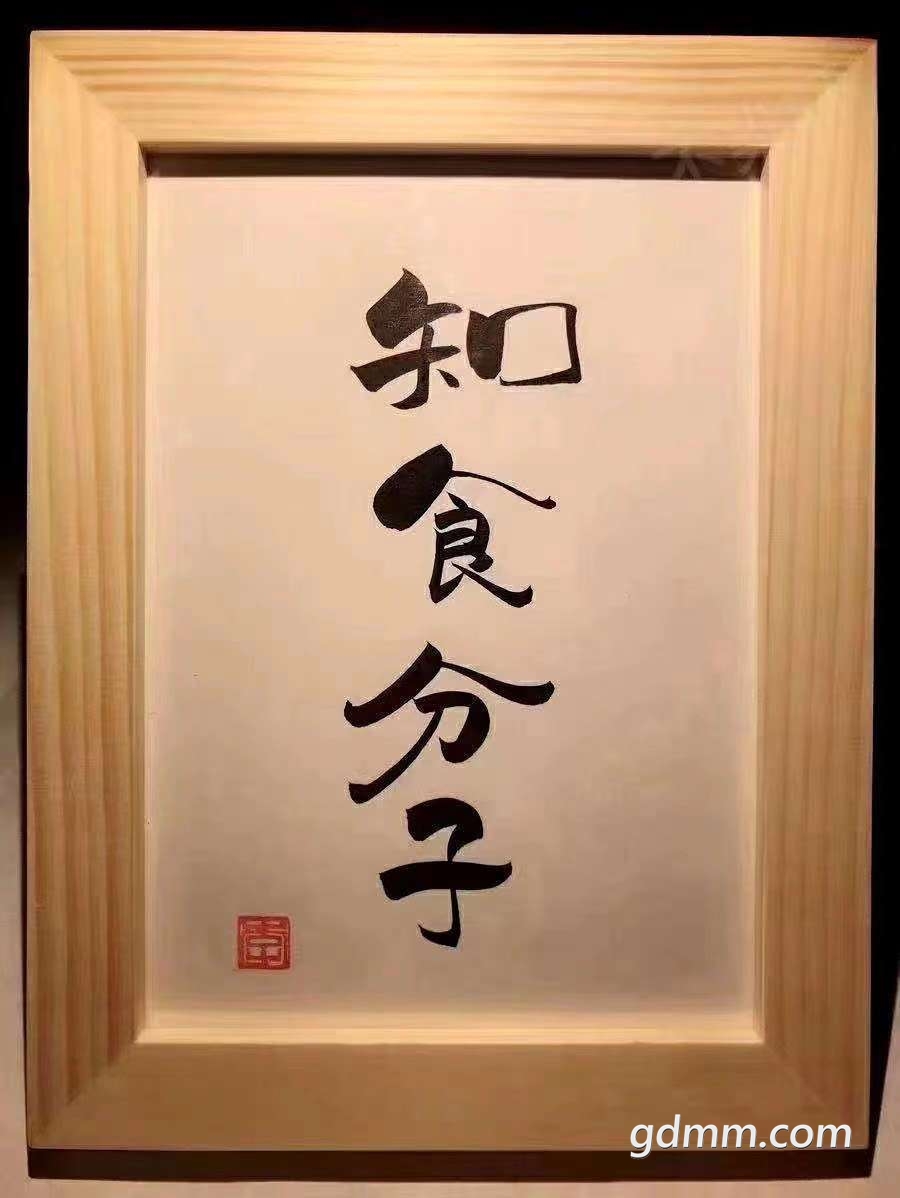 知食分子
gdmm.com